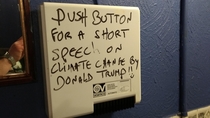 PUSH BUTTON
FOR A SHORT
SPEECH ON
CLIMATE CHANGE BY
DONALD TRUMP!!